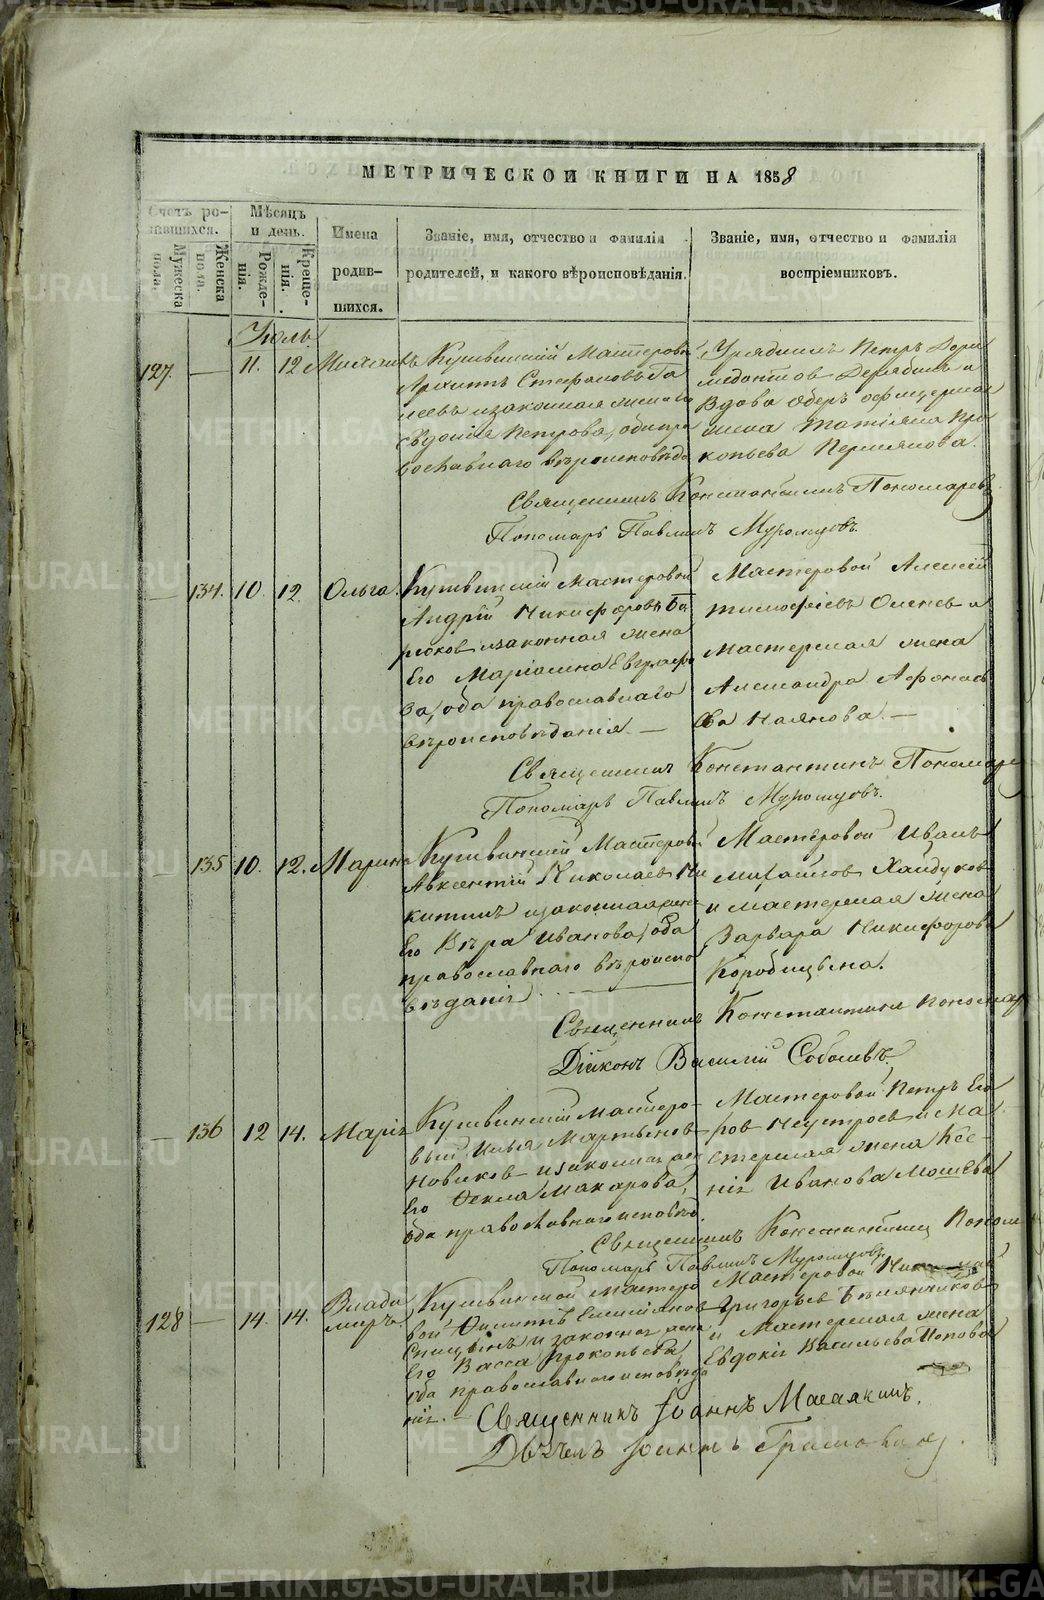 МЕТРИЧЕСКОЙ КНИГИ НА 1858
Счетъ ро-
дившихся.
Мужеска
пола.
Женска
пола.
Мѣсяцъ
и день.
Рожде-
нія.
Креще-
нія.
Имена
родив-
шихся.
Званіе, имя, отчество и фамилія
родителей, и какого вѣроисповѣданія.
Званіе, имя, отчество и фамилія
воспріемниковъ.
Іюль
127. — 11. 12 Михаилъ Кушвинскій Мастеровой
Архиппъ Стефановъ Га
и законная жена его
Евдокія Петрова, оба пра
вославнаго вѣроисповѣда
Урядникъ Петръ Дори
медонтовъ Дерябинъ и
Вдова Оберъ офицерская
жена Татіана Про
копьева Пермякова.
Священникъ Константинъ Пономаревъ
Пономарь Павлинъ Муромцовъ.
— 134. 10. 12. Ольга Кушвинскій Мастеровой
Андрей Никифоровъ Ба
рюков и законная жена
Его Маріамна Евграфо
ва, оба православнаго
вѣроисповѣданія —
Мастеровой Алексѣй
Тимофеевъ Оленев и
Мастерская жена
Александра Афонась
ева Наянова. —
Священникъ Константинъ Пономаре
Пономарь Павлинъ Муромцовъ.
— 135 10. 12. Марина Кушвинскій Мастеровой
Авксентій Николаевъ Ни
китинъ и законная жена
Его Вѣра Иванова, оба
православнаго вѣроиспо
вѣданія
Мастеровой Иванъ
Михайлов Хайдуков
и мастерская жена
Варвара Никифорова
Коробицына.
Священникъ Константинъ Пономар
Діаконъ Василій Соболевъ.
— 136 12 14. Марія Кушвинскій Мастеро-
вый Илья Мартынов
Новиков и законная жена
Его Фекла Макарова,
оба православнаго исповѣд.
Мастеровой Петръ Его
ров Неустроев и Ма
стерская жена Ксе-
нія Иванова Мошева
Священникъ Константинъ Поном
Пономарь Павлинъ Муромцовъ.
128 — 14. 14. Влади
миръ.
Кушвинской мастеро
вой Филиппъ Емельянов
Спицынъ и законная жена
Его Васса Прокопьева
оба православнаго исповѣда
нія. —
Мастеровой
Григорьев
и Мастерская жена
Евдокія Васильева Попова
Священникъ Іоаннъ
Іоаннъ
METRIKI.GASO-URAL.RU